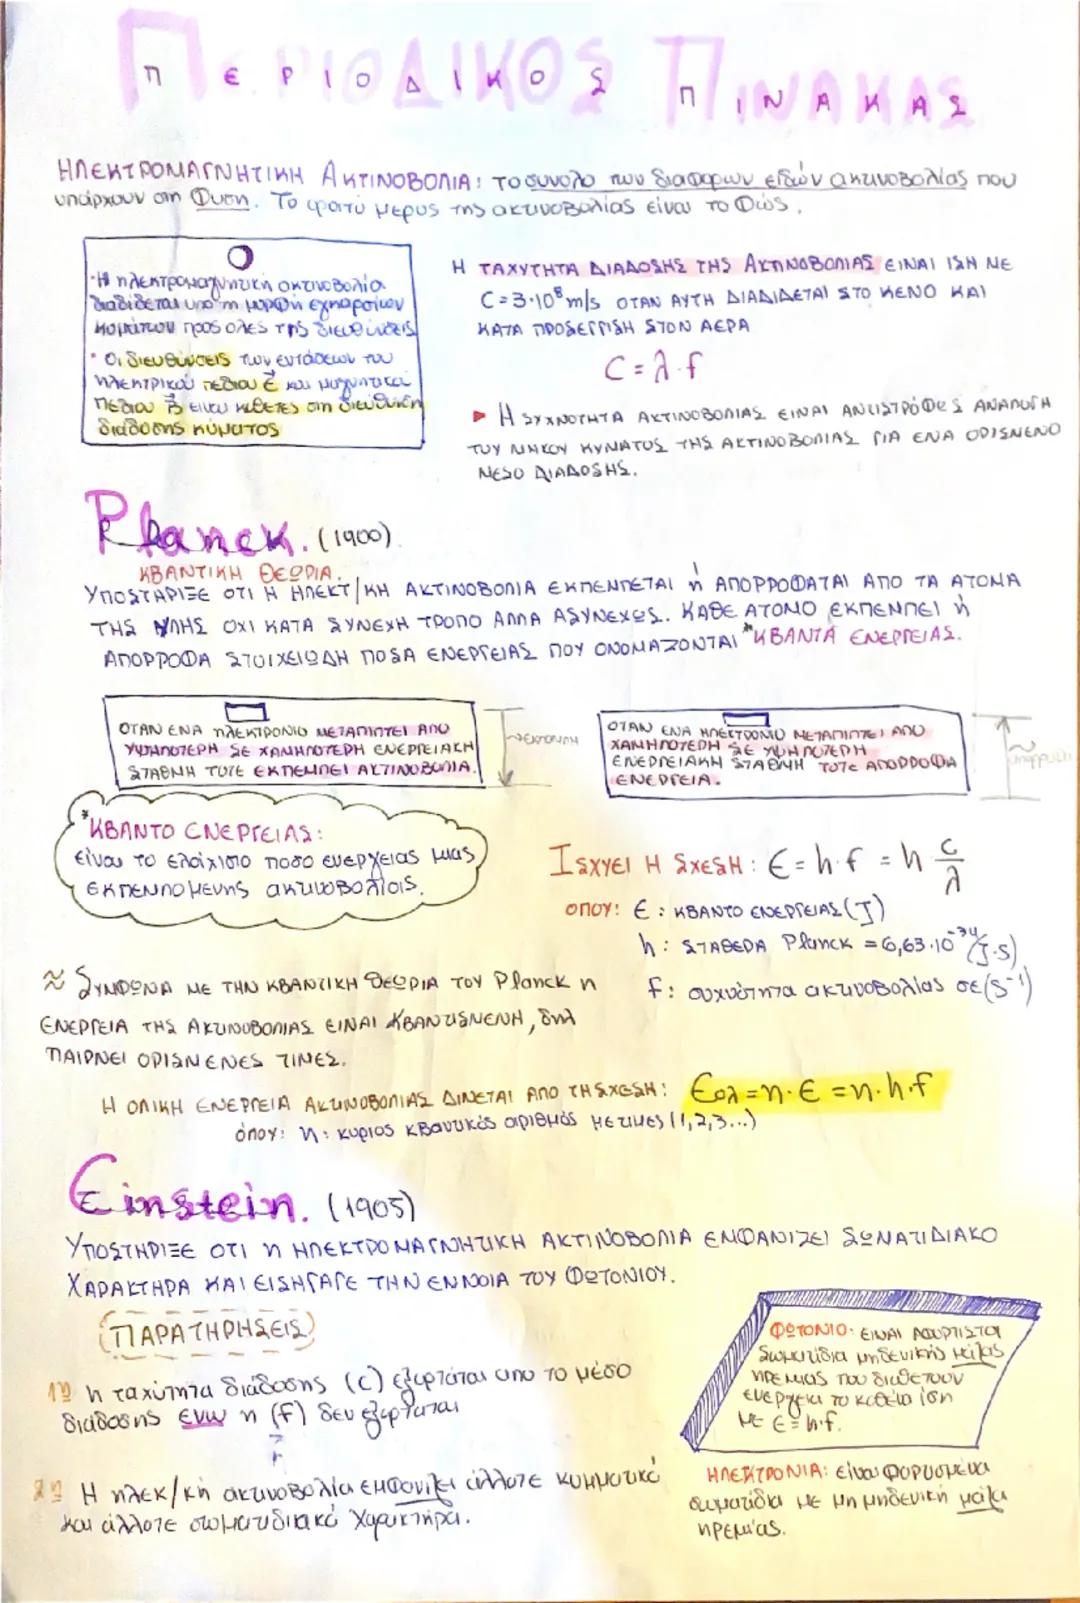 ΠΕΡΙΟΔΙΚΟΣ ΠΙΝΑΚΑΣ
ΗΛΕΚΤΡΟΜΑΓΝΗΤΙΚΗ ΑΚΤΙΝΟΒΟΛΙΑ: το συνολο των διαφορων ειδών ακτινοβολίας που
υπάρχουν στη Φυση. Το ορατό μερος της ακτινοβολίας είναι το Φώς.
• Η ηλεκτρομαγνητική ακτινοβολία
διαδίδεται υπο τη μορφη εγκαρσίων
κυμάτων προς ολες τις διευθύνσεις
• Οι διευθύνσεις των εντάσεων του
ηλεκτρικού πεδιου Ε και μαγνητικού
πεδίου Β είναι κάθετες στη διεύθυνση
διαδοσης κύματος
Η ΤΑΧΥΤΗΤΑ ΔΙΑΔΟΣΗΣ ΤΗΣ ΑΚΤΙΝΟΒΟΛΙΑΣ ΕΙΝΑΙ ΙΣΗ ΜΕ
C=3·10⁸ m/s ΟΤΑΝ ΑΥΤΗ ΔΙΑΔΙΔΕΤΑΙ ΣΤΟ ΚΕΝΟ ΚΑΙ
ΚΑΤΑ ΠΡΟΣΕΓΓΙΣΗ ΣΤΟΝ ΑΕΡΑ
C = λ·f
▸ Η ΣΥΧΝΟΤΗΤΑ ΑΚΤΙΝΟΒΟΛΙΑΣ ΕΙΝΑΙ ΑΝΤΙΣΤΡΟΦΩΣ ΑΝΑΛΟΓΗ
ΤΟΥ ΜΗΚΟΥ ΚΥΜΑΤΟΣ ΤΗΣ ΑΚΤΙΝΟΒΟΛΙΑΣ ΓΙΑ ΕΝΑ ΟΡΙΣΜΕΝΟ
ΜΕΣΟ ΔΙΑΔΟΣΗΣ.
Planck. (1900)
ΚΒΑΝΤΙΚΗ ΘΕΩΡΙΑ:
ΥΠΟΣΤΑΡΙΞΕ ΟΤΙ Η ΗΛΕΚΤ/ΚΗ ΑΚΤΙΝΟΒΟΛΙΑ ΕΚΠΕΜΠΕΤΑΙ ή ΑΠΟΡΡΟΦΑΤΑΙ ΑΠΟ ΤΑ ΑΤΟΜΑ
ΤΗΣ ΥΛΗΣ ΟΧΙ ΚΑΤΑ ΣΥΝΕΧΗ ΤΡΟΠΟ ΑΛΛΑ ΑΣΥΝΕΧΩΣ. ΚΑΘΕ ΑΤΟΜΟ ΕΚΠΕΜΠΕΙ ή
ΑΠΟΡΡΟΦΑ ΣΤΟΙΧΕΙΩΔΗ ΠΟΣΑ ΕΝΕΡΓΕΙΑΣ ΠΟΥ ΟΝΟΜΑΖΟΝΤΑΙ *ΚΒΑΝΤΑ ΕΝΕΡΓΕΙΑΣ.
ΟΤΑΝ ΕΝΑ ηΛΕΚΤΡΟΝΙΟ ΜΕΤΑΠΙΠΤΕΙ ΑΠΟ
ΥΨΗΛΟΤΕΡΗ ΣΕ ΧΑΜΗΛΟΤΕΡΗ ΕΝΕΡΓΕΙΑΚΗ
ΣΤΑΘΜΗ ΤΟΤΕ ΕΚΠΕΜΠΕΙ ΑΚΤΙΝΟΒΟΛΙΑ.
~εκπομπη
ΟΤΑΝ ΕΝΑ ΗΛΕΚΤΡΟΝΙΟ ΜΕΤΑΠΙΠΤΕΙ ΑΠΟ
ΧΑΜΗΛΟΤΕΡΗ ΣΕ ΥΨΗΛΟΤΕΡΗ
ΕΝΕΡΓΕΙΑΚΗ ΣΤΑΘΜΗ ΤΟΤΕ ΑΠΟΡΡΟΦΑ
ΕΝΕΡΓΕΙΑ.
*ΚΒΑΝΤΟ ΕΝΕΡΓΕΙΑΣ:
είναι το ελάχιστο ποσο ενεργειας μιας
εκπεμπομενης ακτινοβολίας.
ΙΣΧΥΕΙ Η ΣΧΕΣΗ: Ε = h·f = h c/λ
ΟΠΟΥ: Ε: ΚΒΑΝΤΟ ΕΝΕΡΓΕΙΑΣ (J)
h: ΣΤΑΘΕΡΑ Planck = 6,63·10⁻³⁴ (J·s)
f: συχνότητα ακτινοβολίας σε (s⁻¹)
≈ ΣΥΜΦΩΝΑ ΜΕ ΤΗΝ ΚΒΑΝΤΙΚΗ ΘΕΩΡΙΑ ΤΟΥ Planck η
ΕΝΕΡΓΕΙΑ ΤΗΣ ΑΚΤΙΝΟΒΟΛΙΑΣ ΕΙΝΑΙ ΚΒΑΝΤΙΣΜΕΝΗ, δηλ
ΠΑΙΡΝΕΙ ΟΡΙΣΜΕΝΕΣ ΤΙΜΕΣ.
Η ΟΛΙΚΗ ΕΝΕΡΓΕΙΑ ΑΚΤΙΝΟΒΟΛΙΑΣ ΔΙΝΕΤΑΙ ΑΠΟ ΤΗ ΣΧΕΣΗ: Εολ = n·Ε = n·h·f
όπου: n: κυριος κβαντικός αριθμός με τιμες (1,2,3...)
Einstein. (1905)
ΥΠΟΣΤΗΡΙΞΕ ΟΤΙ η ΗΛΕΚΤΡΟΜΑΓΝΗΤΙΚΗ ΑΚΤΙΝΟΒΟΛΙΑ ΕΜΦΑΝΙΖΕΙ ΣΩΜΑΤΙΔΙΑΚΟ
ΧΑΡΑΚΤΗΡΑ ΚΑΙ ΕΙΣΗΓΑΓΕ ΤΗΝ ΕΝΝΟΙΑ ΤΟΥ ΦΩΤΟΝΙΟΥ.
ΠΑΡΑΤΗΡΗΣΕΙΣ
1η η ταχύτητα διάδοσης (c) εξαρτάται απο το μέσο
διάδοσης ενω η (f) δεν εξαρταται
2η Η ηλεκ/κή ακτινοβολία εμφανίζει άλλοτε κυμματικό
και άλλοτε σωματιδιακό χαρακτήρα.
ΦΩΤΟΝΙΟ: ΕΙΝΑΙ ΑΦΟΡΤΙΣΤΑ
σωματίδια μηδενικής μάζας
ηρεμιας που διαθετουν
ενεργεια το καθένα ίση
ΜΕ Ε = h·f.
ΗΛΕΚΤΡΟΝΙΑ: είναι φορτισμένα
σωματίδια με μη μηδενική μάζα
ηρεμίας.